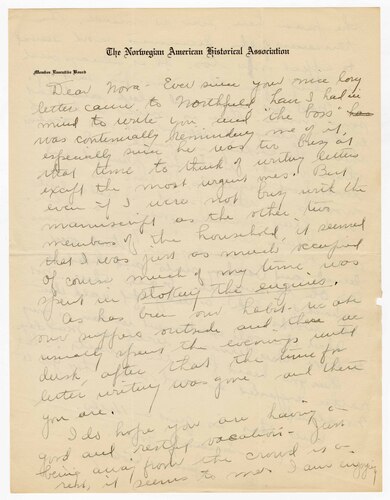 The Norwegian American Historical Association
Member Executive Board
Dear Nora - Ever since your nice long
letter came to Northfield have I had in
mind to write you and "the boss"
was continually reminding me of it,
especially since he was too busy at
that time to think of writing letters
except the most urgent ones. But
even if I were not busy with the
manuscript as the other two
members of the household, it seemed
that I was just as much occupied
of course much of my time was
spent in stoking the engines.
As has been our habit we ate
our suppers outside and there we
usually spent the evenings until
dusk, after that the time for
letter writing was gone and there
you are.
I do hope you are having a
good and restful vacation. Just
being away from the crowd is a
rest, it seems to me. I am enjoying